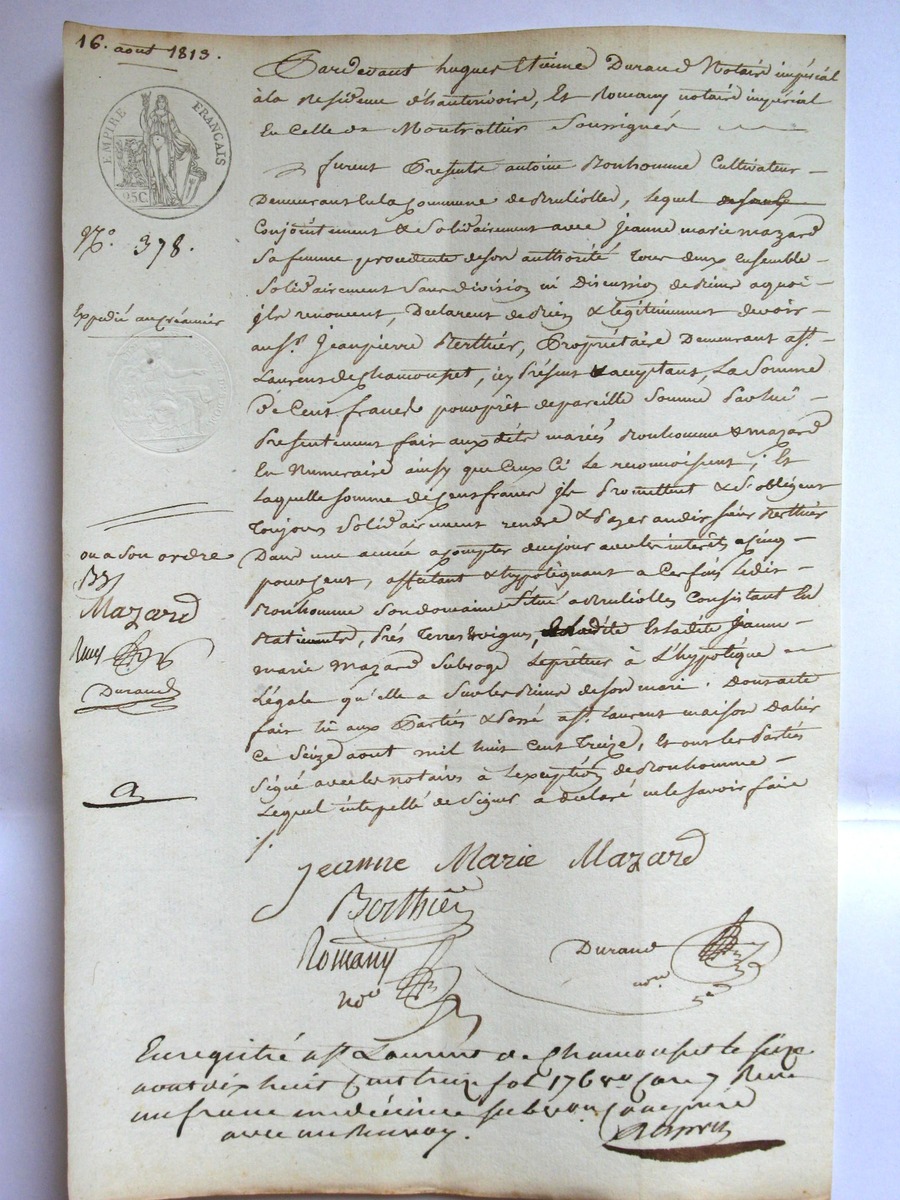 16. aout 1813.
EMPIRE FRANÇAIS
25C.
N.o 378.
Expedié au Créancier
Pardevant hugues Etienne Durand Notaire impérial
à la Residence d'hauterivoire, Et Romany notaire impérial
En Celle de Montrottier Soussignés
furent Presents antoine Bonhomme Cultivateur
Demeurant en la Commune de Brulioles, lequel
Conjointement & Solidairement avec Jeanne marie mazard
Sa femme procedente de son authorité tous deux Ensemble
Solidairement Sans division ni Discussion de Biens a quoi
ils renoncent, Declarent de Bien & légitimement devoir
au Sr. Jean pierre Berthier, Propriétaire Demeurant a St.
Laurent de Chamousset, icy Présent & acceptant, La Somme
De Cent francs pour prêt de pareille Somme Par lui
Presentement fait aux dits mariés Bonhomme & mazard
En Numeraire ainsy que Ceux Ci Le reconnoissent; Et
Laquelle somme de Cent francs ils Promettent & S'obligent
Toujours Solidairement rendre & Payer audit sieur Berthier
Dans une année a compter de ce jour avec les interêts a Cinq
pour Cent, affectant & hypotéquant a Ces fins Ledit
Bonhomme Son domaine Situé a Brulioles Consistant En
Batiments, Prés Terres & vignes, Et Ladite Jeanne
marie Mazard Subroge Le prêteur à L'hypotèque
Légale qu'elle a Sur les Biens de Son mari. Dont acte
fait lu aux Parties & Passé a St. Laurent maison Dalier
Ce Seize aout mil huit Cent treize, Et ont les Parties
Signé avec les notaires à L'exception de Bonhomme
Lequel interpellé de Signer a déclaré ne le Savoir faire
ou a Son ordre
Mazard
Romy
Durand
Jeanne Marie Mazard
Berthier
Romany
nore
Durand
nore
Enregistré a St. Laurent de Chamousset le seize
aout dix huit Cent treize fol. 176 vo Case 7 Recu
un franc un décime subvention Comprise
avec un Renvoy.